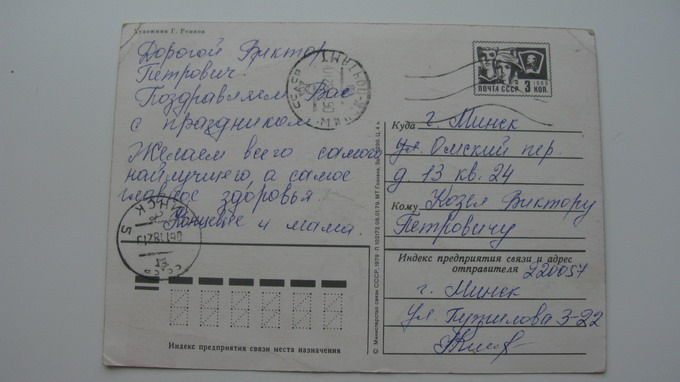 Художник Г. Ренков
Дорогой Виктор
Петрович.
Поздравляем Вас
с праздником.
Желаем всего самого
наилучшего, а самое
главное здоровья.
и мама.
МИНСК 5
СССР
Индекс предприятия связи места назначения
© Министерство связи СССР, 1979
ПОЧТА СССР 3 КОП
Куда г. Минск
ул. Омский пер.
д 13 кв. 24
Кому Козел Виктору
Петровичу
Индекс предприятия связи и адрес
отправителя 220057
г. Минск
ул. 3-22